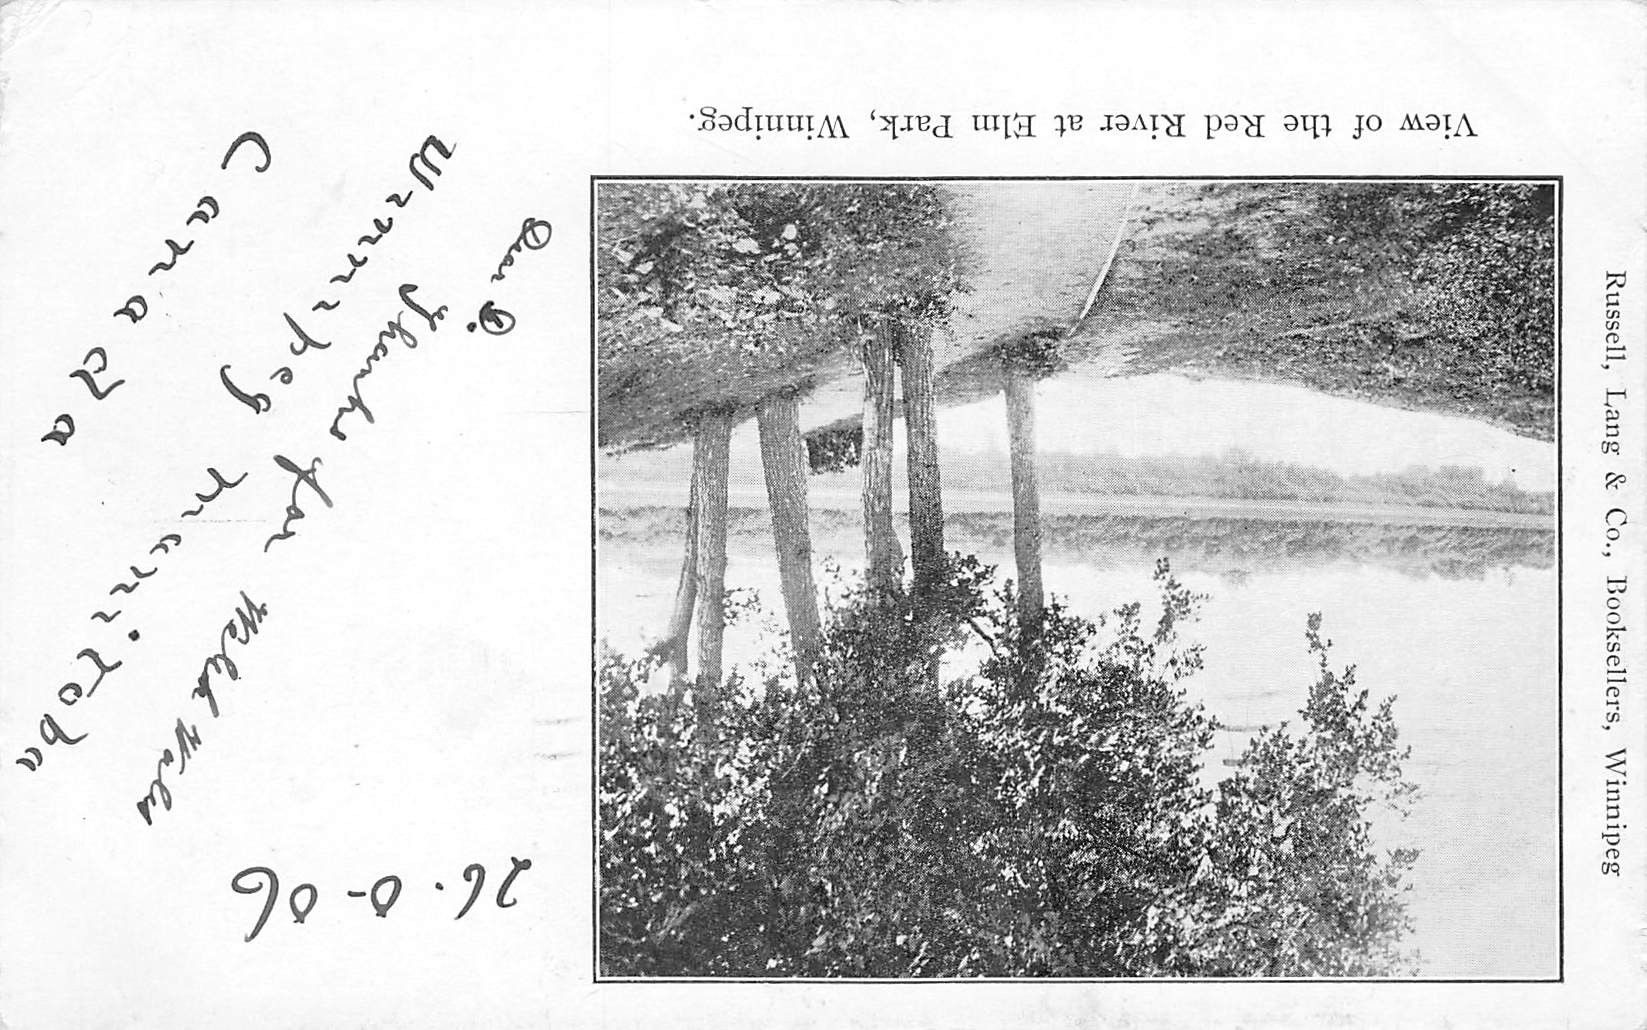 View of the Red River at Elm Park, Winnipeg.
Russell, Lang & Co., Booksellers, Winnipeg
26.0-06
Dear D.
Thanks for Welsh Wales
Winnipeg Manitoba
Canada